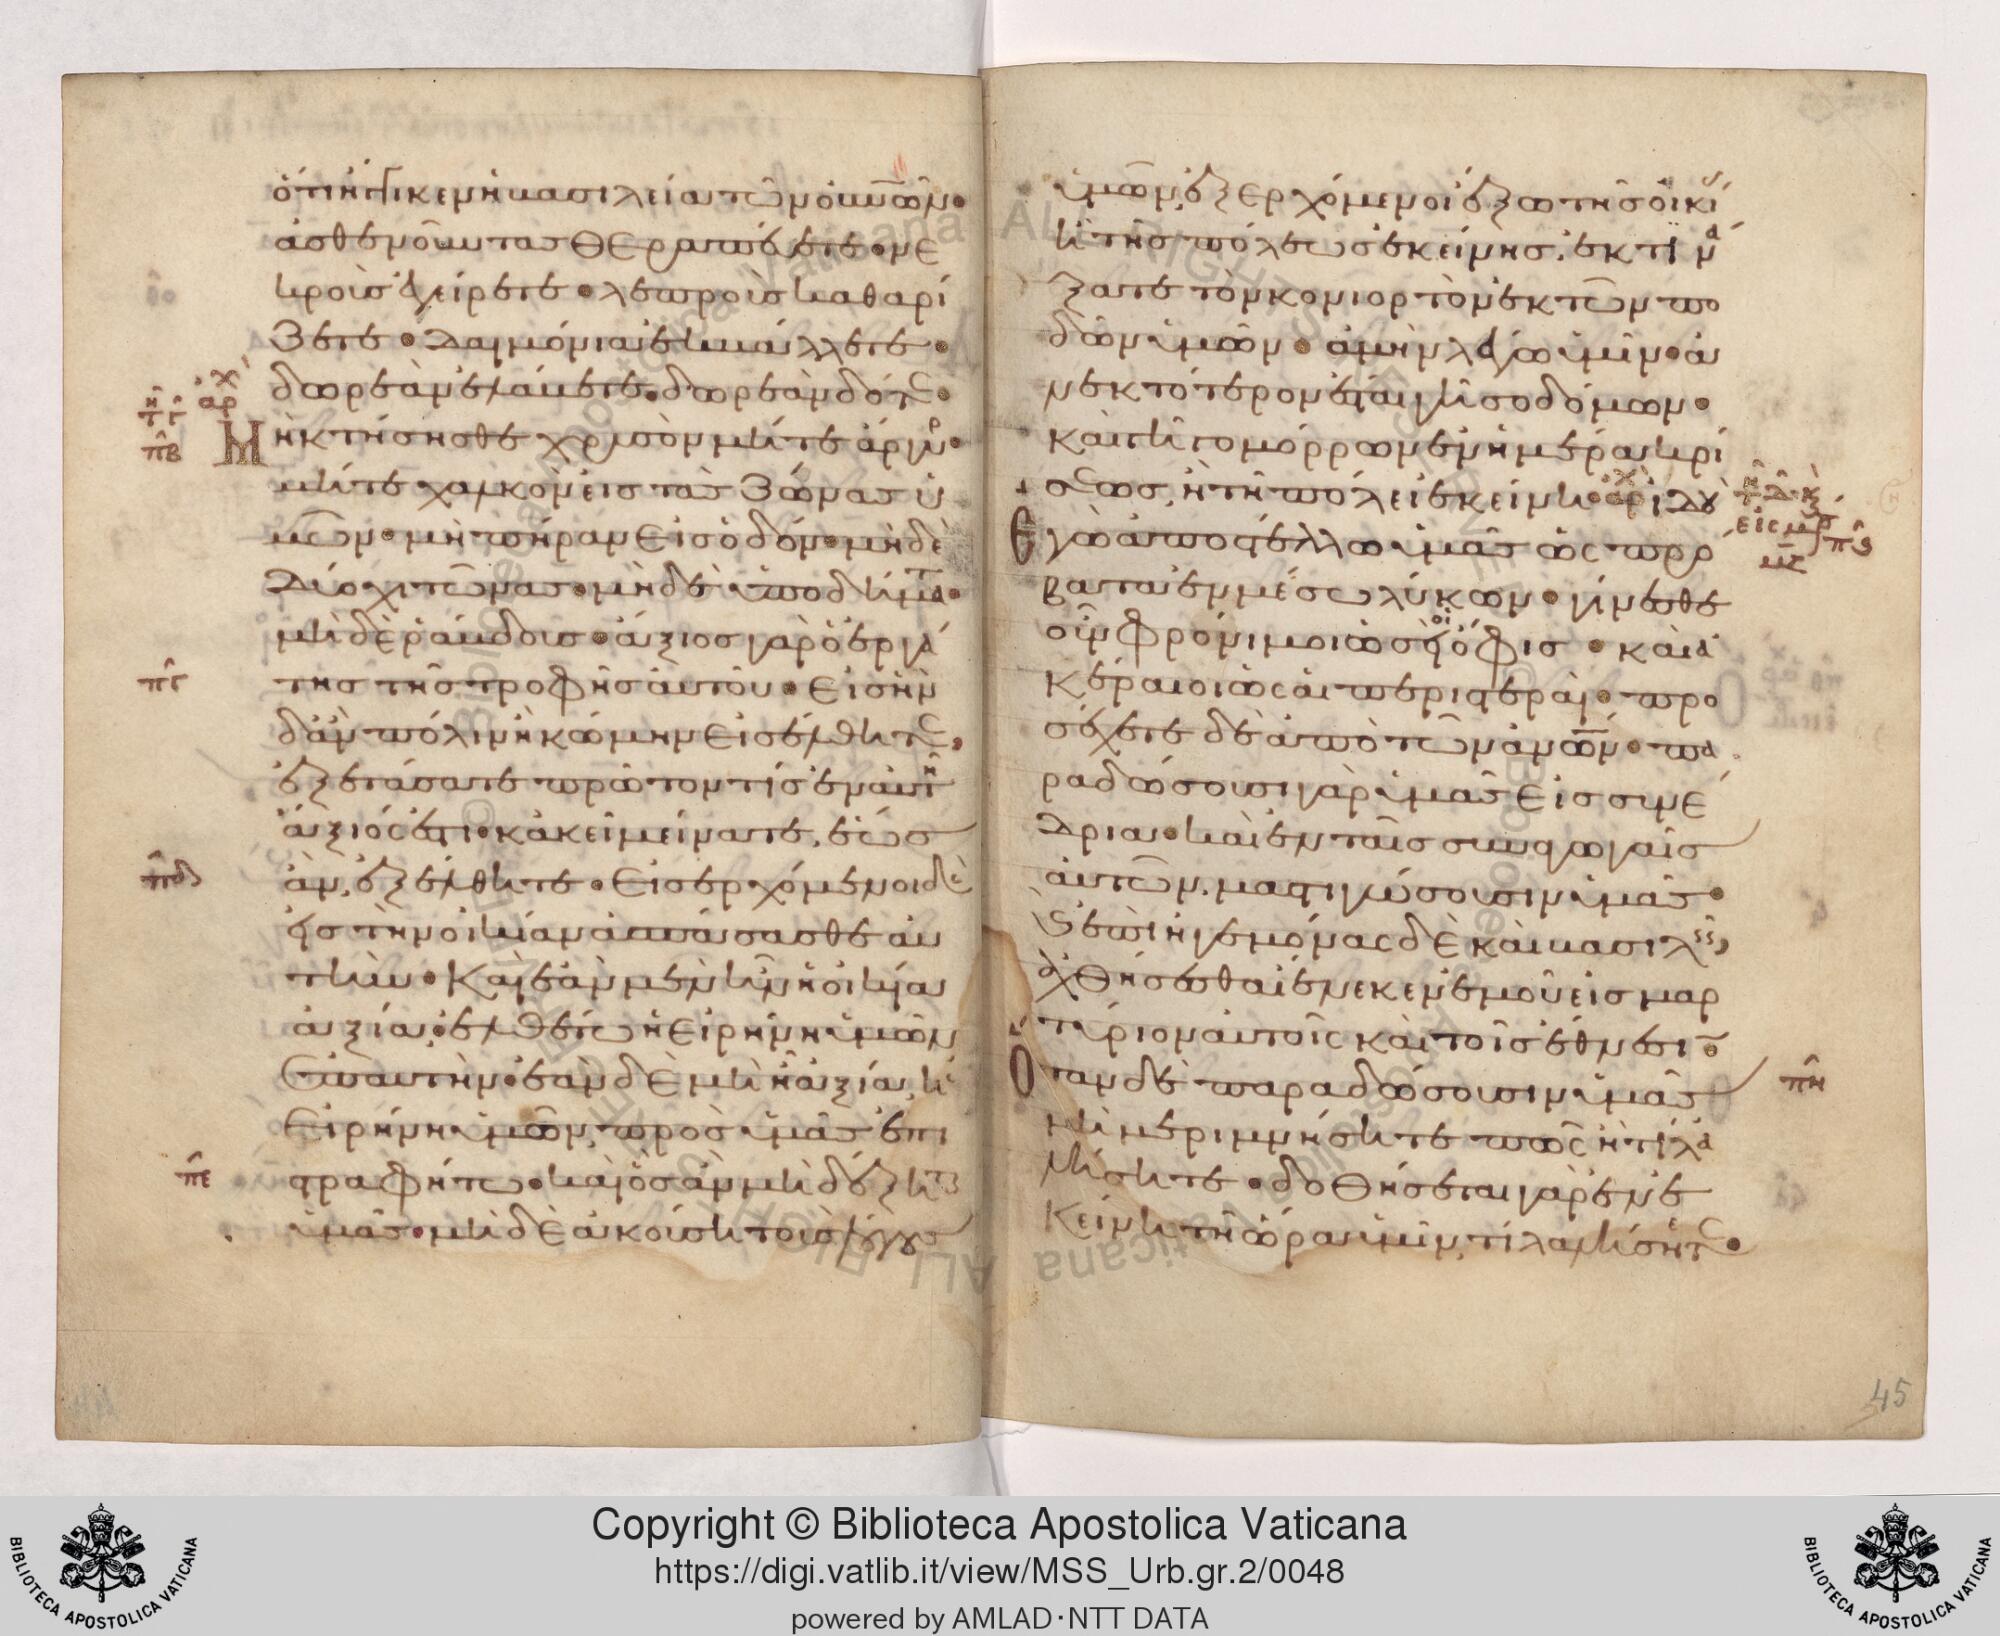 ὅτι ἤγγικεν ἡ βασιλεία τῶν οὐνῶν·
ἀσθενοῦντας θεραπεύετε· νε
κροὺς ἐγείρετε· λεπροὺς καθαρί
ζετε· δαιμόνια ἐκβάλλετε·
δωρεὰν ἐλάβετε· δωρεὰν δότε·
Μὴ κτήσησθε χρυσὸν μήτε ἄργυρο·
μήτε χαλκὸν εἰς τὰς ζώνας ὑ
μῶν· μὴ πήραν εἰς ὁδόν· μηδὲ
δύο χιτῶνας· μηδὲ ὑποδήματα·
μηδὲ ῥάβδους· ἄξιος γὰρ ὁ ἐργά
της τῆς τροφῆς αὐτοῦ· εἰς ἣν
δἂν πόλιν ἢ κώμην εἰσέλθητε,
ἐξετάσατε πρῶτον τίς ἐν αὐτῆ
ἄξιός ἐστι· κἀκεῖ μείνατε, ἕως
ἂν ἐξέλθητε· εἰσερχόμενοι δὲ
εἰς τὴν οἰκίαν ἀσπάσασθε αὐ
τήν· καὶ ἐὰν μὲν ἦν ἡ οἰκία
ἀξία, ἐλθέτω ἡ εἰρήνη ὑμῶν
ἐπ αὐτήν· ἐὰν δὲ μὴ ἦ ἀξία, ἡ
εἰρήνη ὑμῶν, πρὸς ὑμᾶς ἐπι
στραφήτω· καὶ ὃς ἂν μὴ δέξητ
ὑμᾶς· μηδὲ ἀκούση τοὺς λόγους
π̂β
π̂γ
π̂δ
π̂ε
ὑμῶν, ἐξερχόμενοι ἔξω τῆς οἰκί
ἢ τῆς πόλεως ἐκείνης, ἐκτινά
ξατε τὸν κονιορτὸν ἐκ τῶν πο
δῶν ὑμῶν· ἀμὴν λέγω ὑμῖν· ἀ
νεκτότερον ἔσται γῆ σοδόμων·
καὶ γῆ γομόρρων ἐν ἡμέρα κρί
σεως, ἢ τῆ πόλει ἐκείνη· ἰδοὺ
Ἐγὼ ἀποστέλλω ὑμᾶς ὡς προ
βατα ἐν μέσω λύκων· γίνεσθε
οὖν φρόνιμοι ὡς οἱ ὄφις· καὶ ἀ
κέραιοι ὡς αἱ περιστεραί· προ
σέχετε δὲ ἀπὸ τῶν ἀνῶν· πα
ραδώσουσι γὰρ ὑμᾶς εἰς συνέ
δρια· καὶ ἐν ταῖς συναγωγαῖς
αὐτῶν, μαστιγώσουσιν ὑμᾶς·
καὶ ἐπὶ ἡγεμόνας δὲ καὶ βασιλεῖς
ἀχθήσεσθαι ἕνεκεν ἐμοῦ εἰς μαρ
τύριον αὐτοῖς καὶ τοῖς ἔθνεσι·
Ὅταν δὲ παραδώσουσιν ὑμᾶς
μὴ μεριμνήσητε πῶς ἢ τί λα
λήσητε· δοθήσεται γὰρ ἐν ἐ
κείνη τῆ ὥρα ὑμῖν, τί λαλήσητε·
π̂ς
π̂η
45
Copyright © Biblioteca Apostolica Vaticana
https://digi.vatlib.it/view/MSS_Urb.gr.2/0048
powered by AMLAD·NTT DATA
BIBLIOTECA APOSTOLICA VATICANA
BIBLIOTECA APOSTOLICA VATICANA